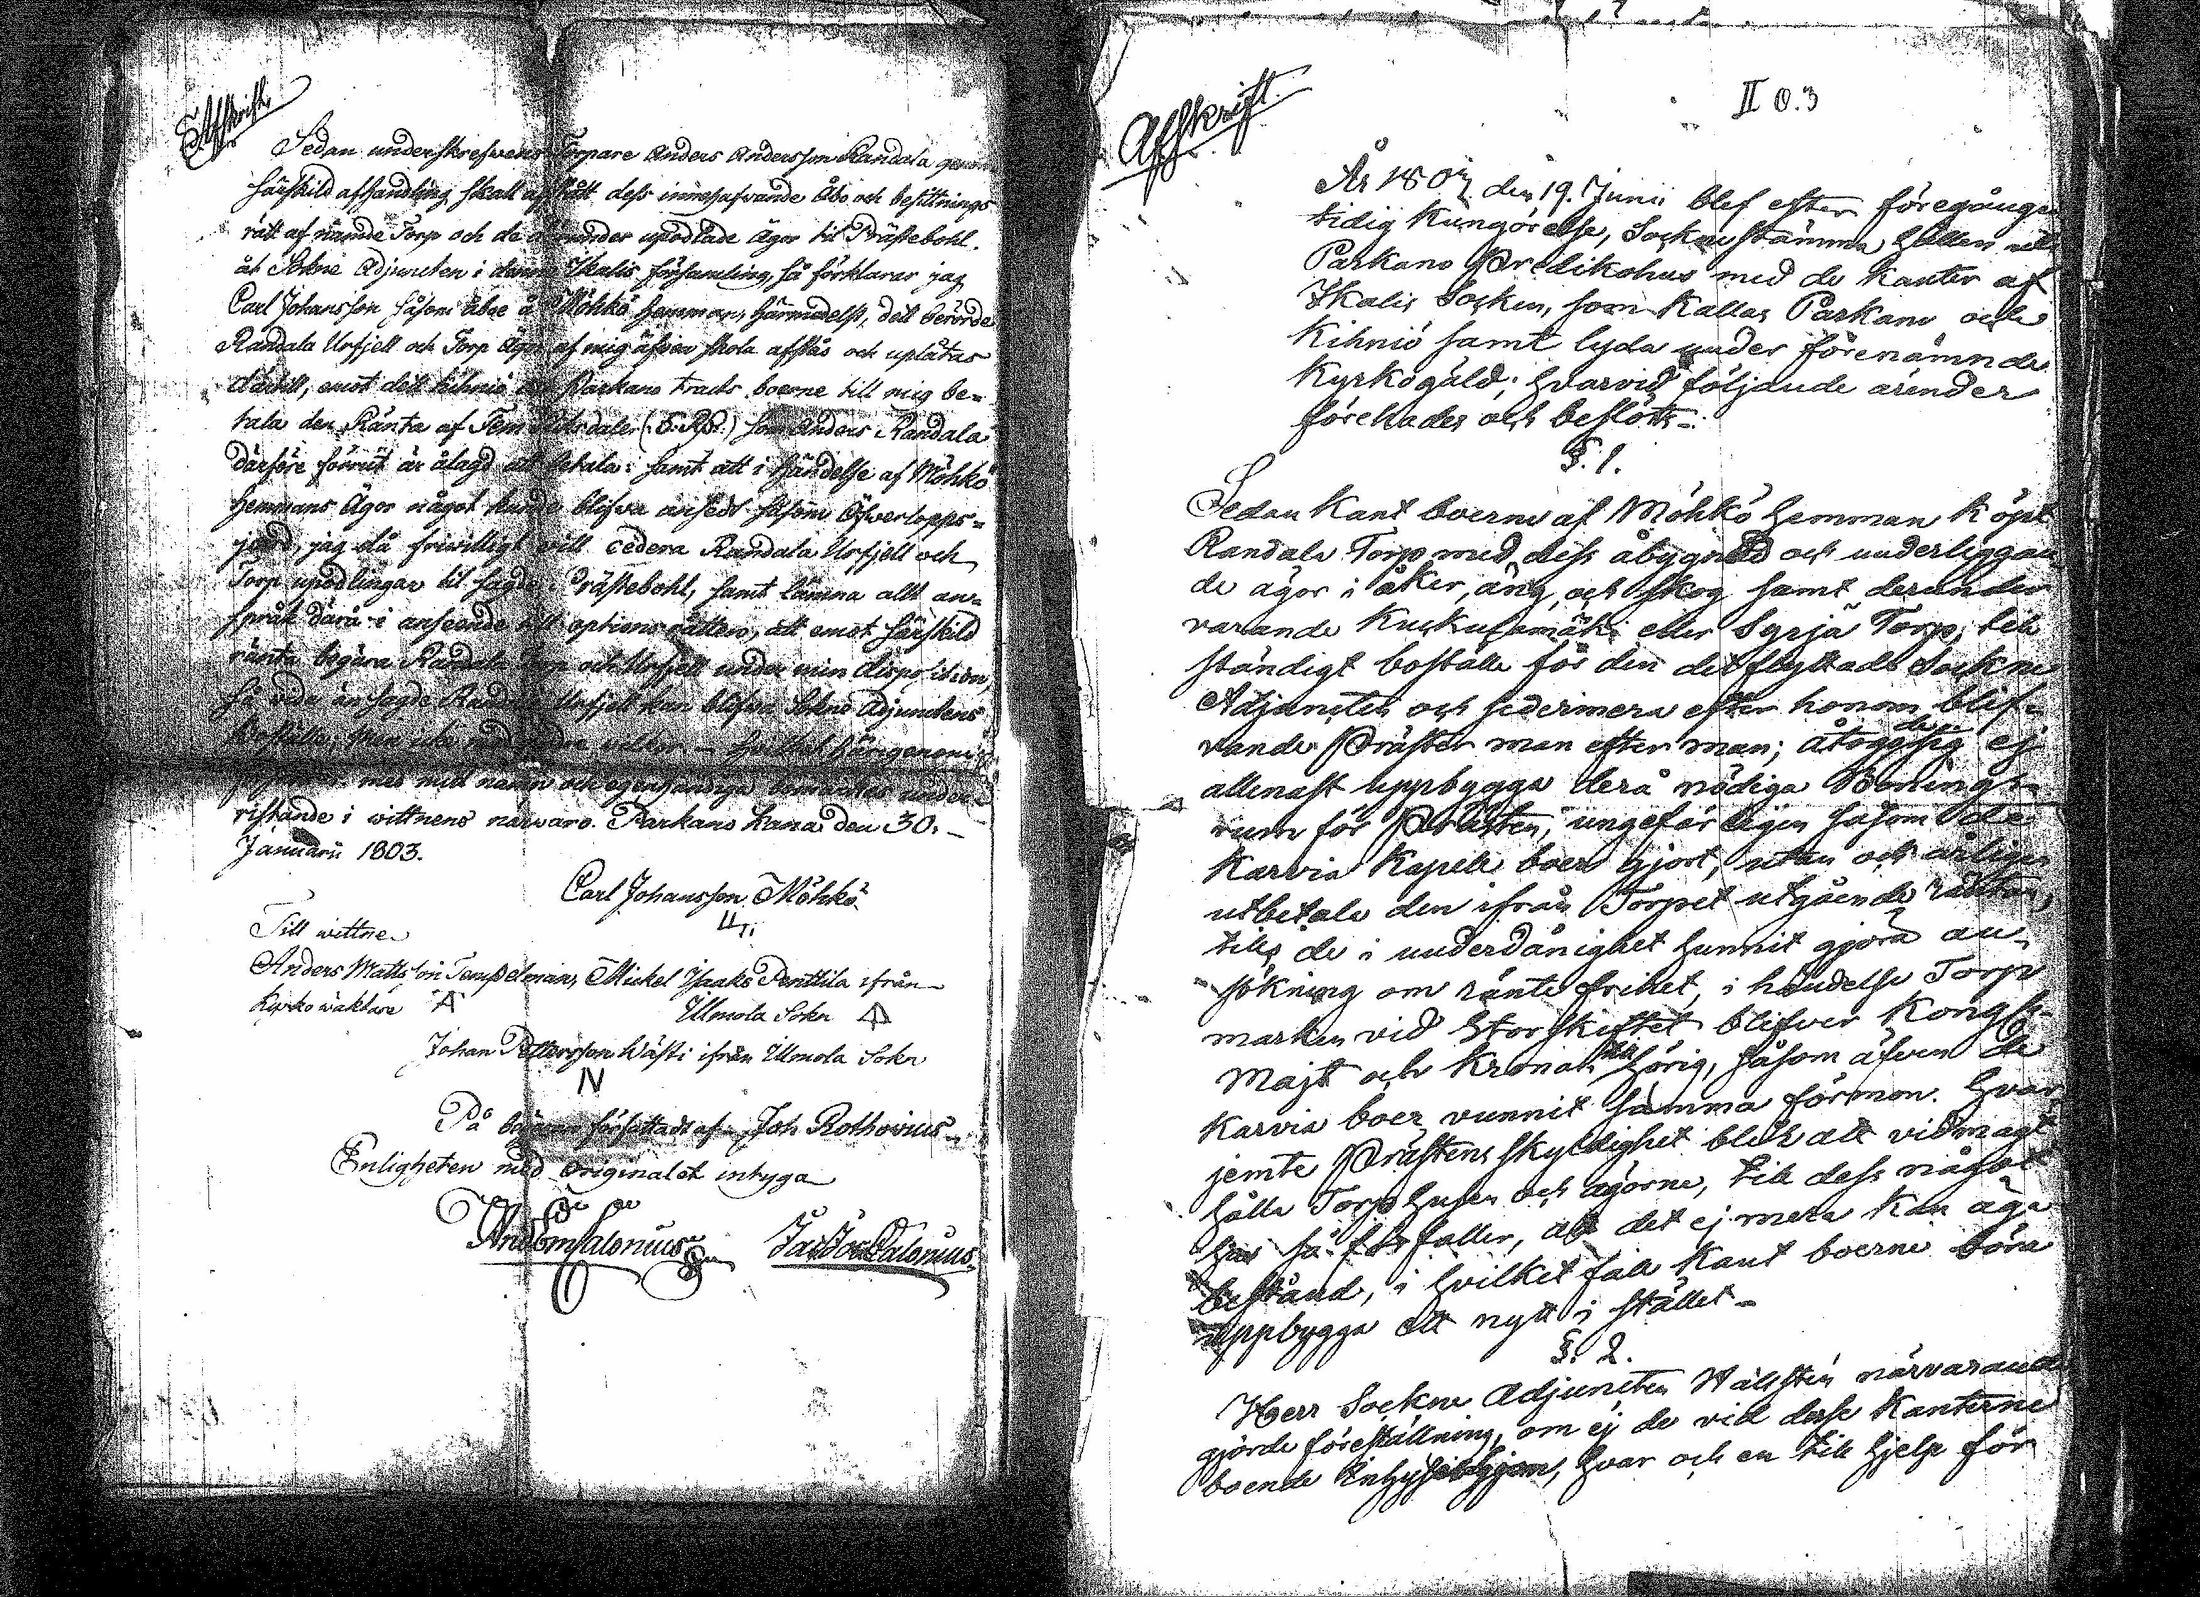 Afskrift.
Sedan underskrefvens Torpare Anders Andersson Randala genom
särskild afhandling skall afstått dess innehafvande Åbo och besittnings
rätt af nämde Torp och de derunder upodlade Ägor til Prästebohl.
åt Sokne Adjuncten i denna Ikalis församling, så förklarar jag
Carl Johansson såsom åboe å Möhkö hemman, härmedelst, det berörde
Randala Urfjell och Torp Ägor af mig äfven skola afstås och uplåtas
därtill, emot det Kihniö och Parkano tracts boerne till mig be-
tala den Ränta af Fem Riksdaler (5. Rdr.) som Anders Randala
därföre förrut är ålagd att betala: samt att i händelse af Möhkö
hemmans Ägor något kunde blifva ansedt såsom Öfverlopps-
jord, jag då friwilligt vill cedera Randala Urfjell och
Torp upodlingar til sagde Prästebohl, samt lämna allt an-
språk därå i anseende till options rätten, att emot särskild
ränta begära Randala Torp och Urfjell under min disposition,
så vida än sagde Randala Urfjell kan blifva Sokne Adjunctens
Boställe, men icke med andra vilkor - hvilket härigenom
med mitt namn och egenhändiga bomärkes under-
ristande i wittnens närvaro. Parkano Kana den 30.
Januarii 1803.
Carl Johansson Möhkö
Till wittne
Anders Mattsson Tempelman, Mickel Isaaks Penttila ifrån
Kyrko wäktare Ilmola Sokn
Johan Pettersson Wästi ifrån Ilmola Sokn
IV
På begäran författadt af Joh Rothovius
Enligheten med Originalet intyga
And Em Salonius Jas Jos Calonius
Afskrift.
II O.3
År 1807 den 19. Junii blef efter föregången
tidig Kungörelse, Sockne stämma hållen vid
Parkano Predikohus med de Kanter af
Ikalis Socken, som Kallas Parkano och
Kihniö samt lyda under förenämnde
Kyrkogäld; hvarvid följande ärender
förehades och beslöts:
§. 1.
Sedan Kant boerne af Möhkö hemman Köpt
Randala Torp med dess åbygnad och underliggan
de ägor i åker, äng och skog samt derunder
varande Kuckusamäki eller Syrjä Torp, till
ständigt boställe för den dit flyttade Sockne
Adjuncten och sedermera efter honom blif-
vande Präster man efter man; åtogo de sig ej
allenast uppbygga derå nödiga Bonings-
rum för Prästen, ungefärligen såsom de
Karvia Kapell boer gjort, utan och årligen
utbetala den ifrån Torpet utgående räntan,
tills de i underdånighet hunnit gjöra an-
sökning om ränte frihet, i händelse Torp
marken vid Storskiftet blifver Kongl.
Majt och Kronan tillhörig, såsom äfven de
Karvia boer vunnit samma förmon. Hvar
jemte Prästens skyldighet blir att vidmagt
hålla Torp husen och ägorne, till dess något
hus så förfaller, att det ej mera kan äga
bestånd, i hvilket fall Kant boerne böra
uppbygga ett nytt i stället-
§. 2.
Herr Sockne Adjuncten Wallstén närvarande
gjorde föreställning, om ej de vid desse Kanterne
boende hvar och en till hjelp för